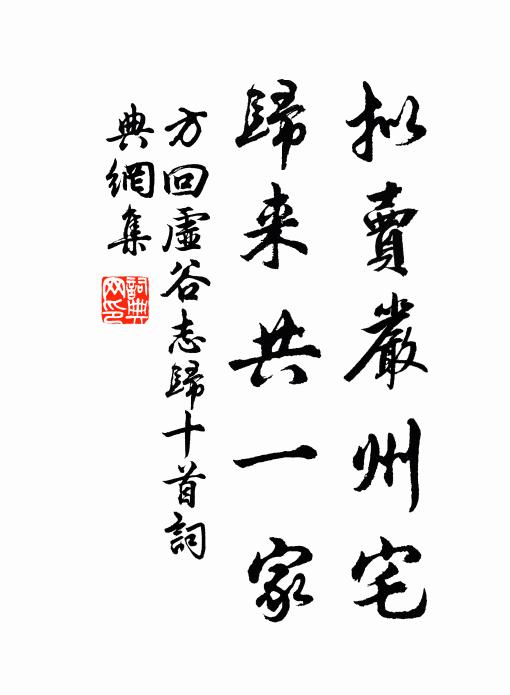 拟賣嚴州宅
歸来共一家
方回虛谷志歸十首詞
典網集
詞典网印